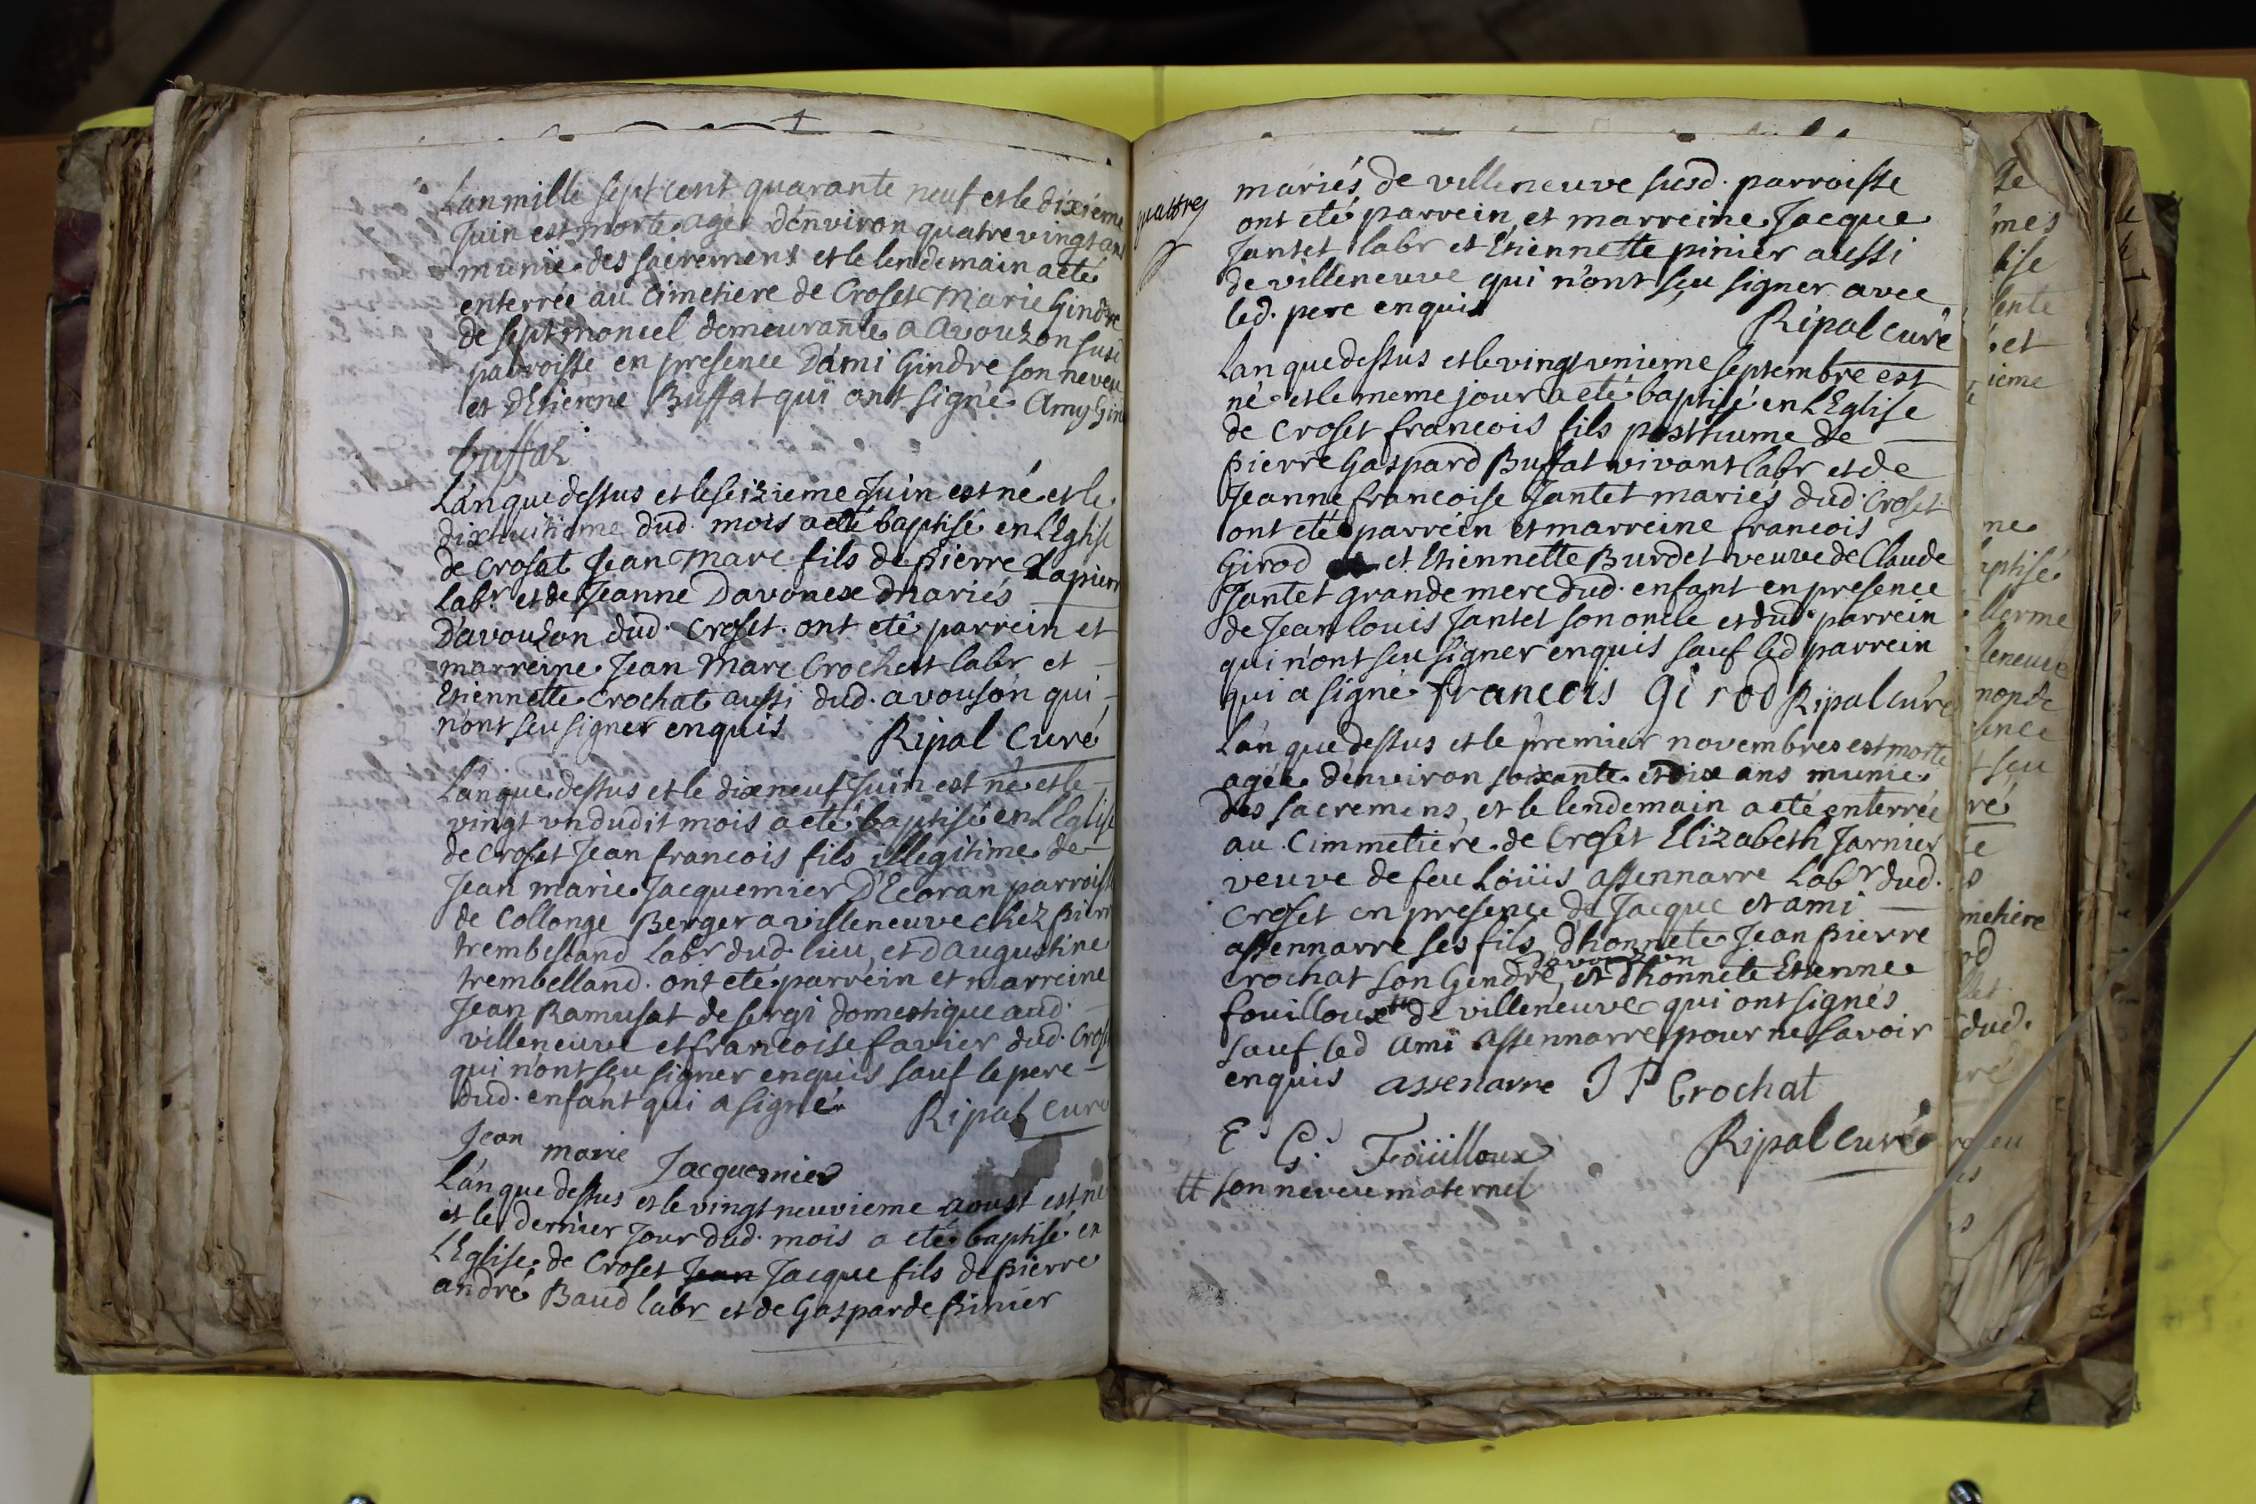 Lan mille sept cent quarante neuf et le dixiéme
Juin est morte ageé d'énviron quatre vingt ans
munie des sacremens et le lendemain a eté
enterrée au Cimetiere de Croset Marie Gindre
de septmoncel demeurante a avouzon susd
parroisse en presence D'ami Gindre son neveu
et d'Etienne Buffat qui ont signé Amy Gin
buffaz
L'an que dessus et le seizieme Juin est né et le
dixhuitieme dud. mois a eté baptisé en L'Eglise
de Croset Jean Marc fils de pierre Lapierr
Labr. et de Jeanne Davonex mariés
D'avouzon dud. Croset. ont eté parrein et
marreine Jean Marc Crochet labr et
Etiennette Crochat aussi dud. avouson qui
n'ont seu signer enquis Ripal Curé
L'an que dessus et le dixneuf Juin est né et le
vingt un dudit mois a eté baptisé en L'Eglise
de Croset Jean francois fils illegitime de
Jean marie Jacquemier D'Ecoran parroisse
de Collonge Berger a villeneuve chez pierr
trembelland Labr dud. lieu, et d'augustine
trembelland. ont eté parrein et marreine
Jean Ramusat de sergi domestique aud.
villeneuve et francoise favier dud. Cros
qui n'ont seu signer enquis sauf le pere
dud. enfant qui a signé Ripal Curé
Jean marie Jacquemier
L'an que dessus et le vingt neuvieme aoust est né
et le dernier Jour dud. mois a eté baptisé en
L'Eglise de Croset Jean Jacque fils de pierre
andré Baud labr et de Gasparde pinier
quattre
mariés de villeneuve susd. parroisse
ont eté parrein et marreine Jacque
Jantet labr et Etiennette pinier aussi
de villeneuve qui n'ont sçu signer avec
led. pere enquis
Ripal Curé
Lan que dessus et le vingt unieme septembre est
né et le meme jour a eté baptisé en L'Eglise
de Croset francois fils posthume de
pierre Gaspard Buffat vivant labr et de
Jeanne francoise Jantet mariés dud. Croset
ont eté parrein et marreine francois
Girod et Etiennette Burdet veuve de Claude
Jantet grande mere dud. enfant en presence
de Jean louis Jantet son oncle et dud. parrein
qui n'ont seu signer enquis sauf led parrein
qui a signé francois Girod Ripal Curé
L'an que dessus et le premier novembres est morte
agée d'énviron soixante et dix ans munie
des sacremens, et le lendemain a eté enterrée
au Cimmetiére de Croset Elizabeth Jarnier
veuve de feu Loüis assennarre Labr dud.
Croset en presence de Jacque et ami
assennarre ses fils, d'honnete Jean pierre
davouzon
Crochat son Gendre, et d'honnete Etienne
fouilloux # de villeneuve qui ont signés
sauf led Ami assennarre pour ne savoir
enquis assenarre J P Crochat
E. G. Foüilloux
Ripal Curé
# son neveu maternel